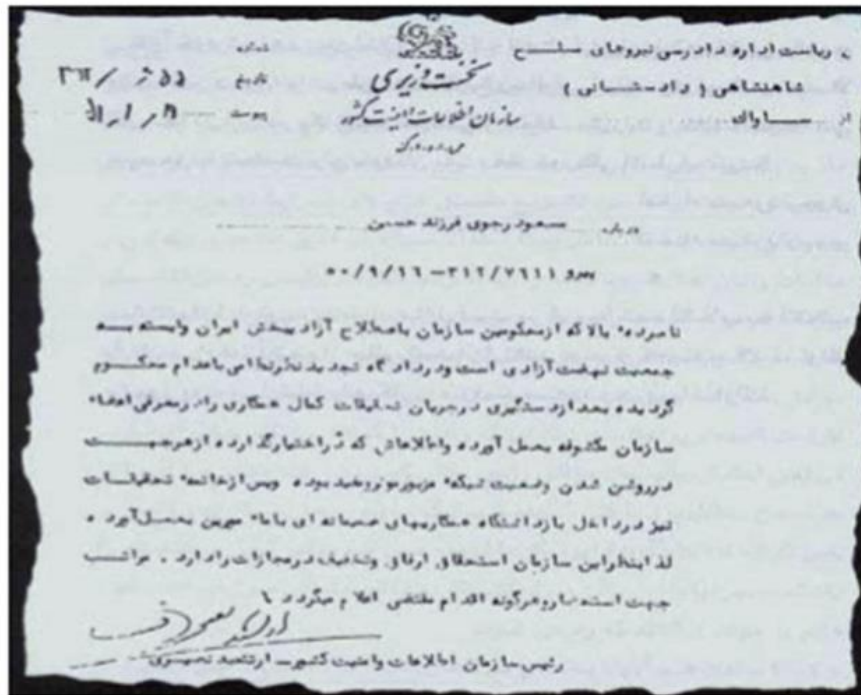 به ریاست اداره دادرسی نیروهای مسلح
شاهنشاهی (دادستانی)
از ساواک
نخست وزیری
سازمان اطلاعات و امنیت کشور
شماره
تاریخ
پیوست
درباره مسعود رجوی فرزند حسین
پیرو ۳۱۲/۷۶۱۱ – ۵۰/۹/۱۶
نامبرده بالا که از محکومین سازمان باصطلاح آزادیبخش ایران وابسته به
جمعیت نهضت آزادی است و در دادگاه تجدید نظر نظامی باعدام محکوم
گردیده بعد از دستگیری در جریان تحقیقات کمال همکاری را در معرفی اعضاء
سازمان مکشوفه بعمل آورده و اطلاعاتی که در اختیار گذارده از هر جهت
در روشن شدن وضعیت شبکه مزبور موثر و مفید بوده و پس از خاتمه تحقیقات
نیز در داخل بازداشتگاه همکاریهای صمیمانه ای با مامورین بعمل آورده
لذا بنظر این سازمان استحقاق ارفاق و تخفیف در مجازات را دارد . مراتب
جهت استحضار و هرگونه اقدام مقتضی اعلام میگردد
رئیس سازمان اطلاعات و امنیت کشور – ارتشبد نصیری